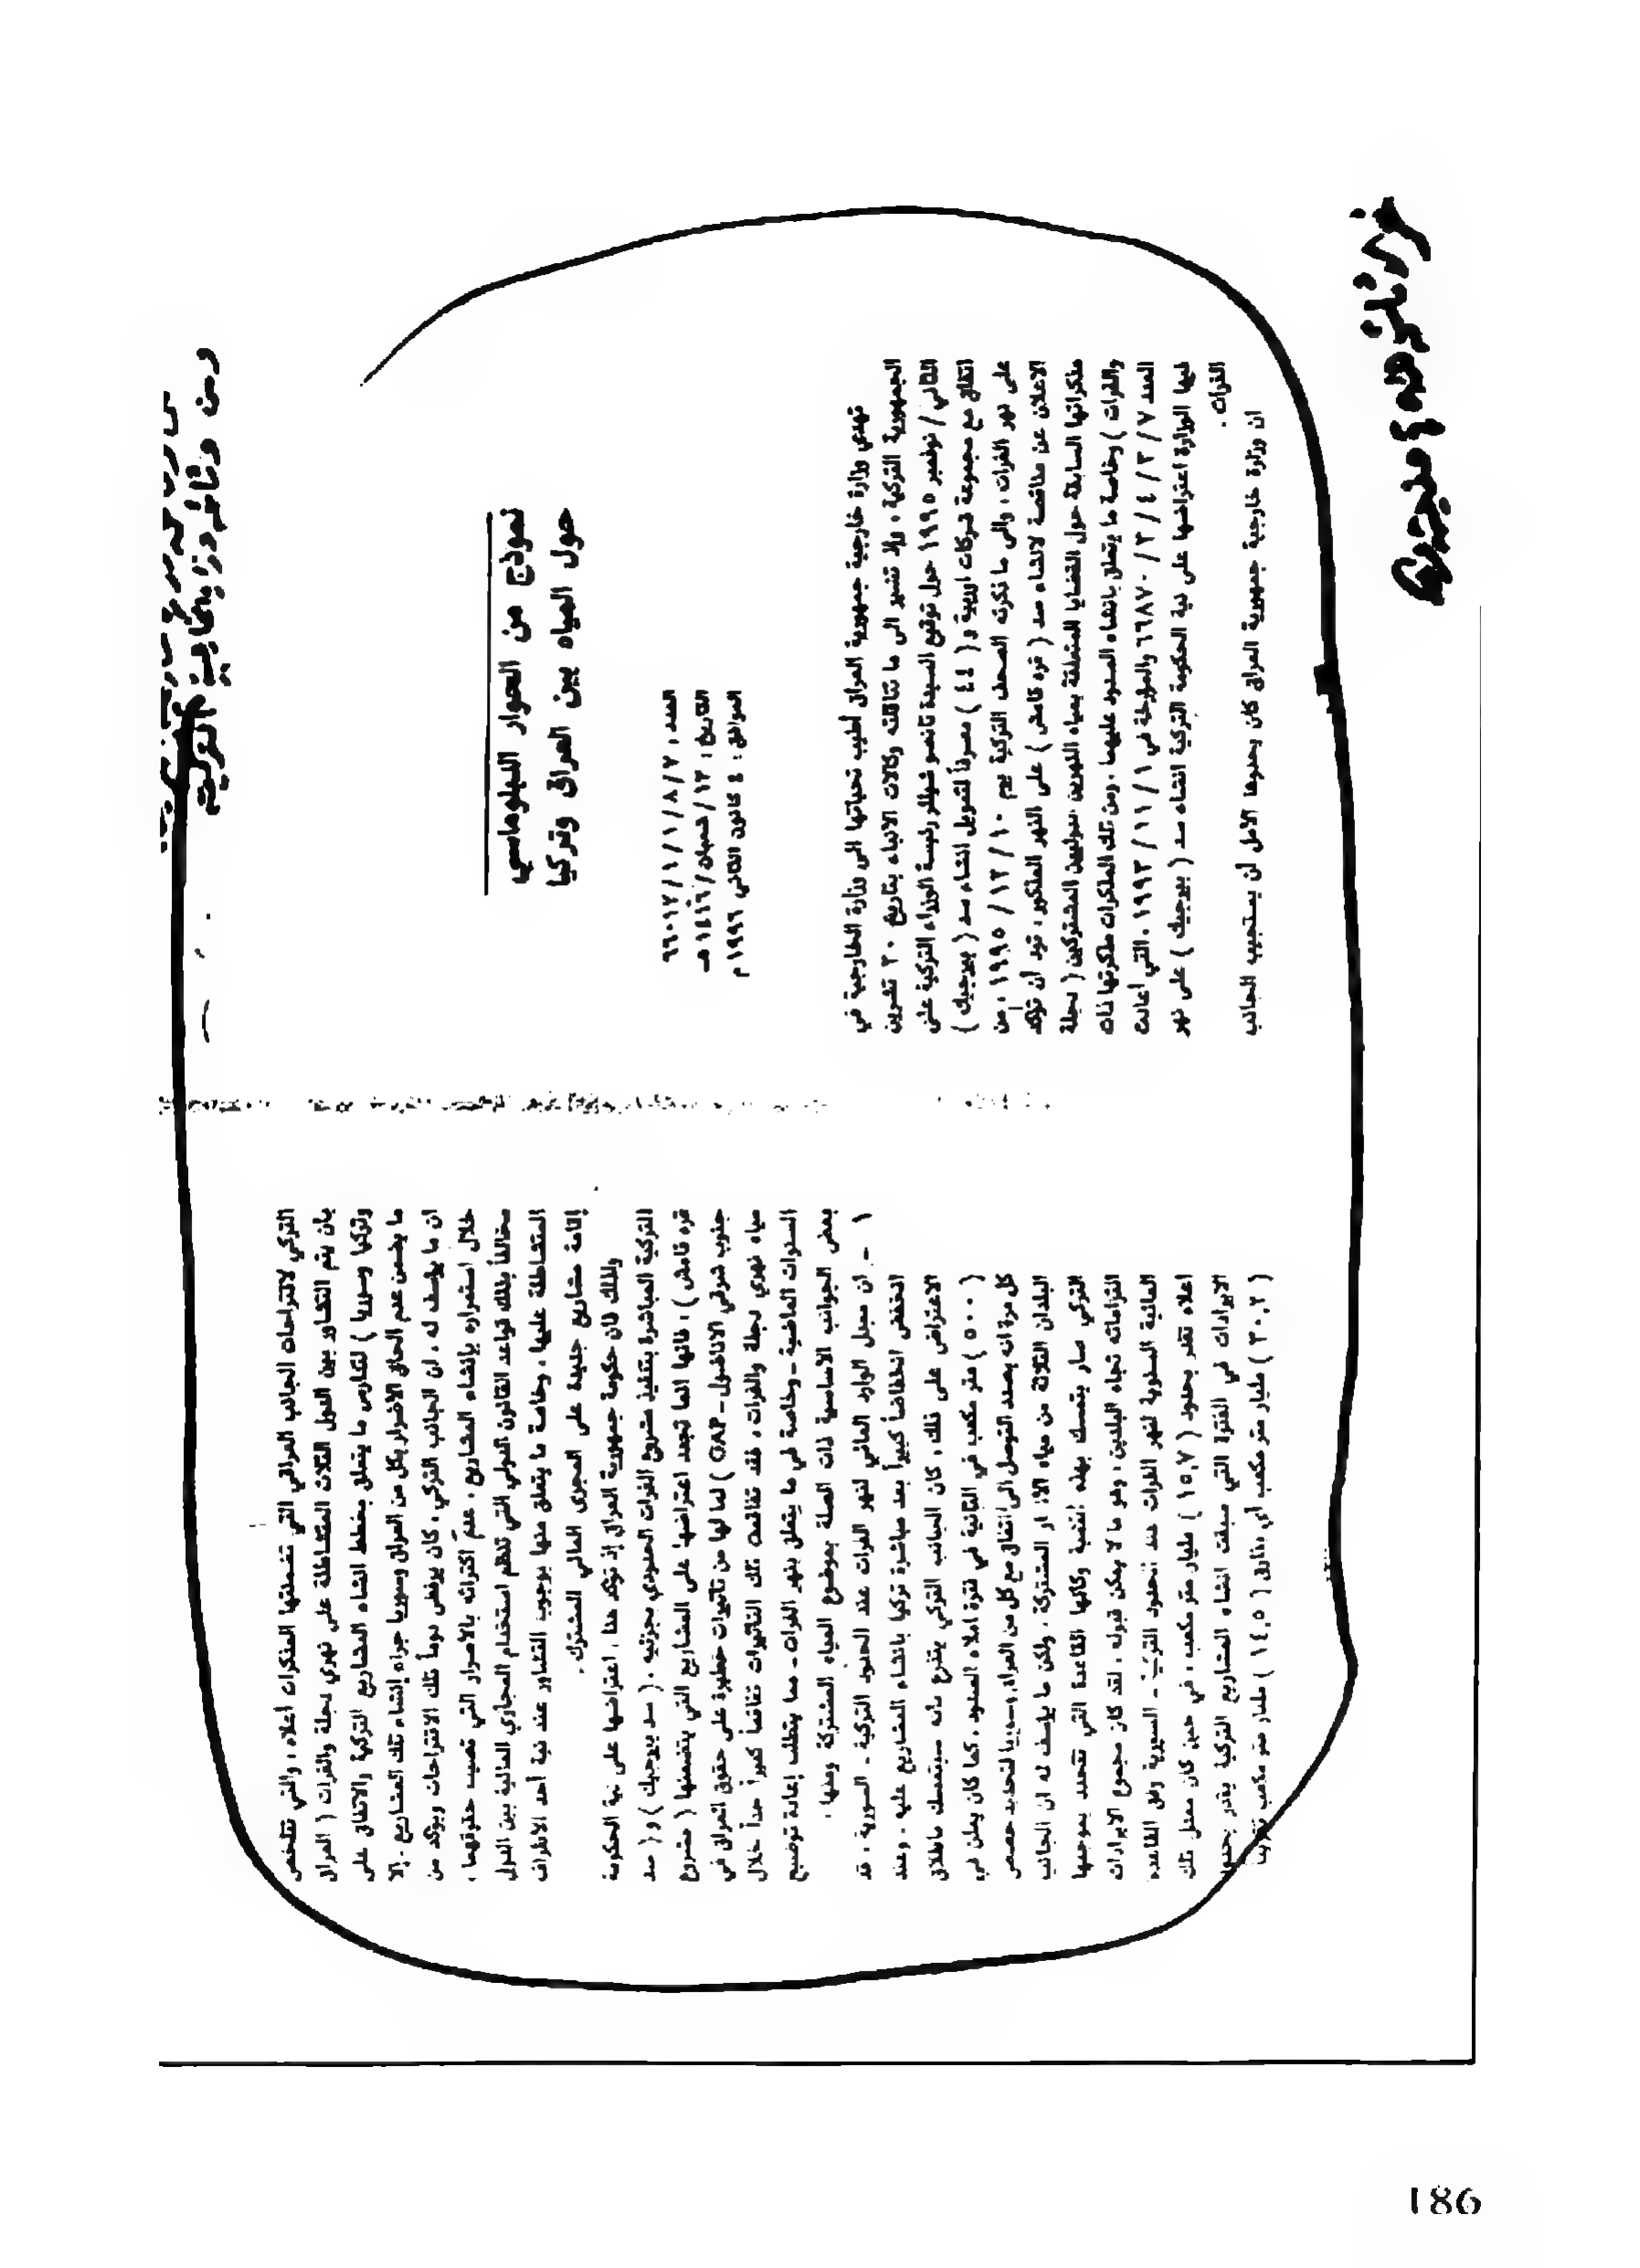 نموذج من الحوار الدبلوماسي
حول المياه بين العراق وتركيا
العدد : ٦٦٠١٢/١/١/٨/٢
التاريخ : ١٣/شعبان/١٤١٦ هـ
الموافق : ٤ كانون الثاني ١٩٩٦ م
تهدي وزارة خارجية جمهورية العراق أطيب تحياتها الى وزارة الخارجية في
الجمهورية التركية ، وإذ تشير الى ما تناقلته وكالات الانباء بتاريخ ٢٠ تشرين
الثاني / نوفمبر ١٩٩٥ حول توقيع السيدة تانسو شيللر رئيسة الوزراء التركية على
اتفاق مع مجموعة شركات اوربية و ( ٤٤ ) مصرفاً لتمويل انشاء سد ( بيرجيك )
على نهر الفرات ، والى ما ذكرته الصحف التركية يوم ١٠ / ١٢ / ١٩٩٥ ، من
الاعلان عن مناقصة لانشاء سد ( قره قامش ) على النهر المذكور ، تود أن تؤكد
مذكراتها السابقة حول القضايا المتعلقة بمياه النهرين الدوليين المشتركين ( دجلة
والفرات ) وخاصة ما يتعلق بانشاء السدود عليهما ، ومن تلك المذكرات مذكرتها ذات
العدد ٧ / ٢ / ٤ / ٢ / ٦٦٨٧٠ والمؤرخة في ١ / ١١ / ١٩٩٣ ، التي اعادت
فيها الوزارة اعتراضها على نية الحكومة التركية انشاء سد ( بيرجيك ) على نهر
الفرات .
ان وزارة خارجية جمهورية العراق كان يحدوها الأمل لن يستجيب الجانب
التركي لاقتراحات الجانب العراقي التي تضمنتها المذكرات اعلاه ، والتي تتلخص
بأن يتم التشاور بين الدول الثلاث المتشاطئة على نهري دجلة والفرات ( العراق
وتركيا وسوريا ) لتدارس ما يتعلق بخطط انشاء المشاريع التركية والاتفاق على
ما يضمن عدم الحاق الاضرار بكل من العراق وسوريا جراء إنشاء تلك المشاريع . إلا
ان ما يؤسف له ، ان الجانب التركي ، كان يرفض دوماً تلك الاقتراحات ويؤكد من
خلال استمراره بإنشاء المشاريع ، عدم اكتراثه بالأضرار التي تصيب حقوقهما ،
مخالفاً بذلك قواعد القانون الدولي التي تنظم استخدام المجاري المائية بين الدول
المتشاطئة عليها ، وخاصة ما يتعلق منها بوجوب التشاور عند نية أحد الاطراف
إقامة مشاريع جديدة على المجرى المائي المشترك .
ولذلك فان حكومة جمهورية العراق إذ تؤكد هنا ، اعتراضها على نية الحكومة
التركية المباشرة بتنفيذ مشروع الفرات الحدودي بجزئيه ، ( سد بيرجيك ) و ( سد
قره قامش ) ، فانها انما تجدد اعتراضها على المشاريع التي يتضمنها ( مشروع
جنوب شرقي الاناضول - GAP ) لما لها من تأثيرات خطيرة على حقوق العراق في
مياه نهري دجلة والفرات ، فقد تفاقمت تلك التأثيرات تفاقماً كبيراً جداً خلال
السنوات الماضية - وخاصة في ما يتعلق بنهر الفرات - مما يتطلب إعادة توضيح
بعض الجوانب الاساسية ذات الصلة بموضوع المياه المشتركة ومنها :
١ - ان معدل الوارد المائي لنهر الفرات عند الحدود التركية - السورية ، قد
انخفض انخفاضاً كبيراً بعد مباشرة تركيا بانشاء المشاريع عليه ، وعند
الاعتراض على ذلك ، كان الجانب التركي يتذرع بأنه سيتمسك باطلاق
( ٥٠٠ ) متر مكعب في الثانية في فترة املاء السدود ، كما كان يعلن في
كل مرة انه بصدد التوصل الى اتفاق مع كل من العراق وسوريا لتحديد حصص
البلدان الثلاثة من مياه الانهار المشتركة ، ولكن ما يؤسف له ان الجانب
التركي صار يتمسك بهذه الكمية وكأنها القاعدة التي تتحدد بموجبها
التزاماته تجاه البلدين ، وهو ما لا يمكن قبوله ، لقد كان مجموع الايرادات
المائية السنوية لنهر الفرات عند الحدود التركية - السورية وفق القاعدة
اعلاه تقدر بحدود ( ١٥,٧ ) مليار متر مكعب ، في حين كان معدل تلك
الايرادات في الفترة التي سبقت انشاء المشاريع التركية يقدر بحدود
( ٣٠,٢ ) مليار متر مكعب أي بفارق ( ١٤,٥ ) مليار متر مكعب تقريباً
186